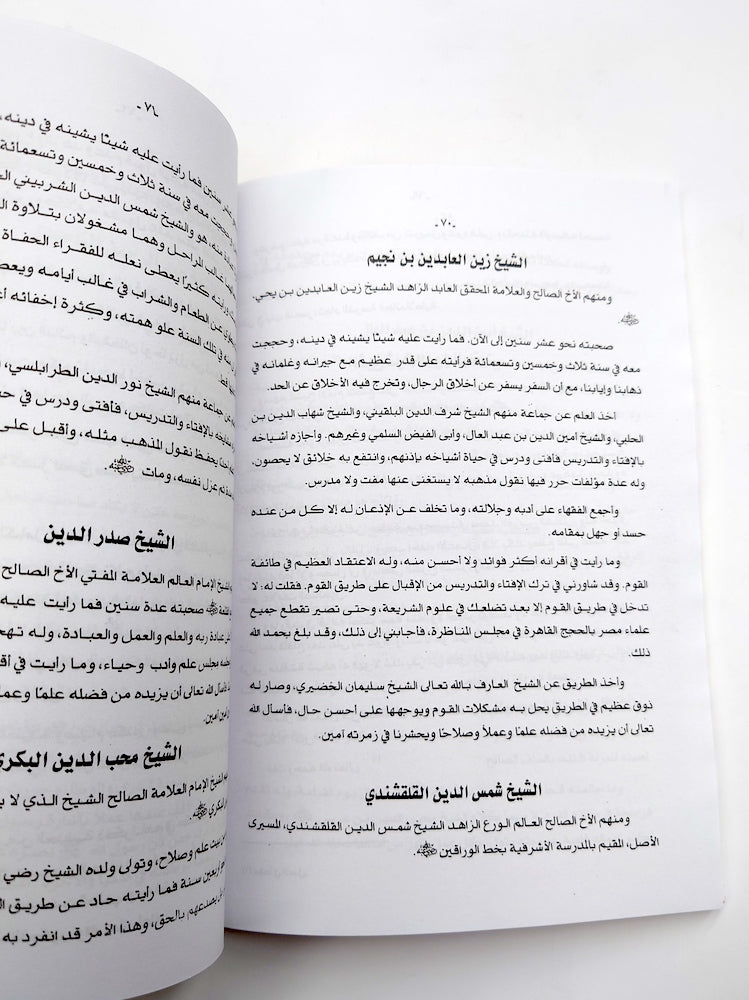 - ٧٠ -
الشيخ زين العابدين بن نجيم
ومنهم الأخ الصالح والعلامة المحقق العابد الزاهد الشيخ زين العابدين بن يحي.
ﷺ
صحبته نحو عشر سنين إلى الآن. فما رأيت عليه شيئا يشينه في دينه، وحججت
معه في سنة ثلاث وخمسين وتسعمائة فرأيته على قدر عظيم مع جيرانه وغلمانه في
ذهابنا وإيابنا، مع أن السفر يسفر عن أخلاق الرجال، وتخرج فيه الأخلاق عن الحد.
أخذ العلم عن جماعة منهم الشيخ شرف الدين البلقيني، والشيخ شهاب الدين بن
الحلبي، والشيخ أمين الدين بن عبد العال، وأبى الفيض السلمي وغيرهم. وأجازه أشياخه
بالإفتاء والتدريس فأفتى ودرس في حياة أشياخه بإذنهم، وانتفع به خلائق لا يحصون.
وله عدة مؤلفات حرر فيها نقول مذهبه لا يستغنى عنها مفت ولا مدرس.
وأجمع الفقهاء على أدبه وجلالته، وما تخلف عن الإذعان له إلا كل من عنده
حسد أو جهل بمقامه.
وما رأيت في أقرانه أكثر فوائد ولا أحسن منه، وله الاعتقاد العظيم في طائفة
القوم. وقد شاورني في ترك الإفتاء والتدريس من الإقبال على طريق القوم. فقلت له: لا
تدخل في طريق القوم إلا بعد تضلعك في علوم الشريعة، وحتى تصير تقطع جميع
علماء مصر بالحجج القاهرة في مجلس المناظرة، فأجابني إلى ذلك، وقد بلغ بحمد الله
ذلك.
وأخذ الطريق عن الشيخ العارف بالله تعالى الشيخ سليمان الخضيري، وصار له
ذوق عظيم في الطريق يحل به مشكلات القوم ويوجهها على أحسن حال، فأسأل الله
تعالى أن يزيده من فضله علمًا وعملاً وصلاحًا ويحشرنا في زمرته آمين.
الشيخ شمس الدين القلقشندي
ومنهم الأخ الصالح العالم الورع الزاهد الشيخ شمس الدين القلقشندي، المسيرى
الأصل، المقيم بالمدرسة الأشرفية بخط الوراقين
سنين فما رأيت عليه شيئا يشينه في دينه،
حججت معه في سنة ثلاث وخمسين وتسعمائة
منه، هو والشيخ شمس الدين الشربيني
غالب المراحل وهما مشغولان بتلاوة
كثيرًا يعطى نعله للفقراء الحفاة
عن الطعام والشراب في غالب أيامه
في تلك السنة علو همته، وكثرة إخفائه
قط.
عن جماعة منهم الشيخ نور الدين الطرابلسي،
بالإفتاء والتدريس، فأفتى ودرس في
أحدا يحفظ نقول المذهب مثله، وأقبل على
ثم عزل نفسه، ومات
الشيخ صدر الدين
الشيخ الإمام العالم العلامة المفتي الأخ الصالح
صحبته عدة سنين فما رأيت عليه
عبادة ربه والعلم والعمل والعبادة، وله
مجلس علم وأدب وحياء، وما رأيت في
الله تعالى أن يزيده من فضله علمًا
آمين.
الشيخ محب الدين البكري
الشيخ الإمام العلامة الصالح الشيخ الذي لا
البكري
بيت علم وصلاح، وتولى ولده الشيخ رضي
أربعين سنة فما رأيته حاد عن طريق
يصدعهم بالحق، وهذا الأمر قد انفرد به